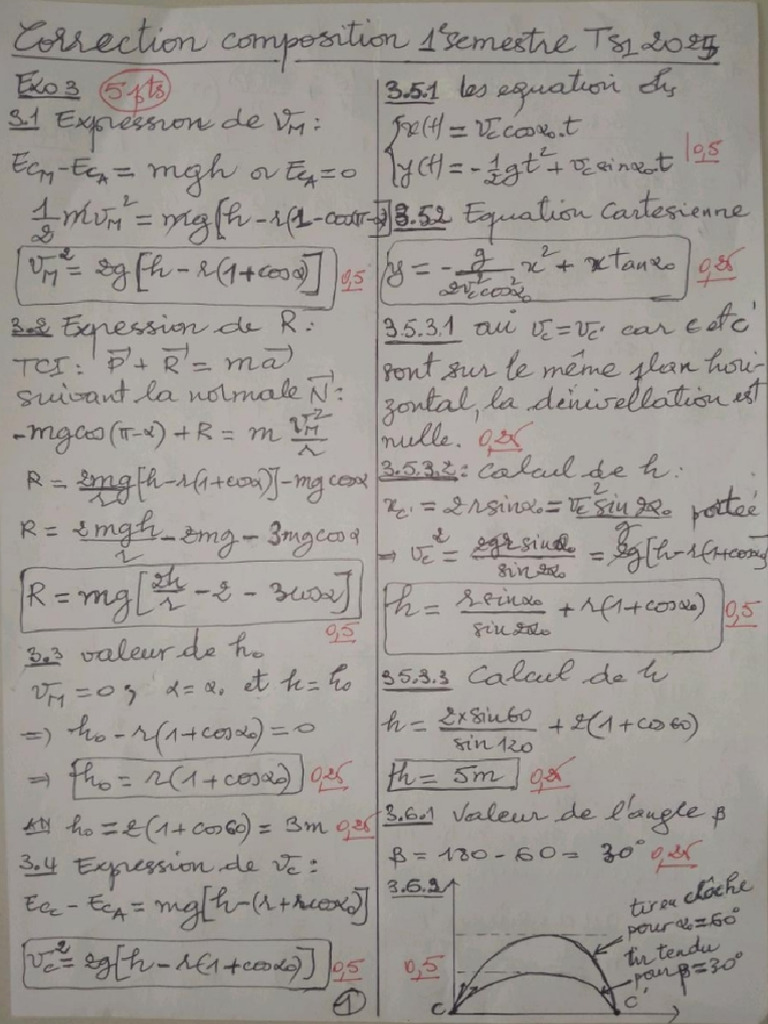 Correction composition 1er semestre TS1 2025
Exo3 5pts
3.1 Expression de V_M :
Ec_M - Ec_A = mgh or Ec_A = 0
1/2 m v_M² = mg[h - r(1 - cos π - α)]
V_M² = 2g[h - r(1 + cos α)] 0,5
3.2 Expression de R :
TCI : P⃗ + R⃗ = m a⃗
suivant la normale N⃗ :
-mg cos(π - α) + R = m V_M²/r
R = 2mg/r [h - r(1 + cos α)] - mg cos α
R = 2mgh/r - 2mg - 3mg cos α
R = mg[2h/r - 2 - 3cos α]
0,5
3.3 valeur de h₀
V_M = 0, α = α₀ et h = h₀
=> h₀ - r(1 + cos α₀) = 0
=> h₀ = r(1 + cos α₀) 0,25
AN h₀ = 2(1 + cos 60) = 3m 0,25
3.4 Expression de v_c :
Ec_c - Ec_A = mg[h - (r + r cos α₀)]
V_c² = 2g[h - r(1 + cos α₀)] 0,5
1
3.5.1 les equation
x(t) = V_c cos α₀.t
y(t) = -1/2 gt² + V_c sin α₀.t
0,5
3.5.2 Equation Cartesienne
y = - g/(2V_c² cos² α₀) x² + x tan α₀ 0,25
3.5.3.1 oui V_c = V_c' car C et C'
sont sur le même plan hori-
zontal, la dénivellation est
nulle. 0,25
3.5.3.2 : calcul de h :
x_c' = 2r sin α₀ = V_c² sin 2α₀/g portée
=> V_c² = 2gr sin α₀/sin 2α₀ = 2g[h - r(1 + cos α₀)]
h = r sin α₀/sin 2α₀ + r(1 + cos α₀) 0,5
3.5.3.3 Calcul de h
h = 2 x sin 60/sin 120 + 2(1 + cos 60)
h = 5m 0,25
3.6.1 Valeur de l'angle β
β = 180 - 60 = 30° 0,25
3.6.2
tir en clôche
pour α₀ = 60°
tir tendu
pour β = 30°
0,5
C C'